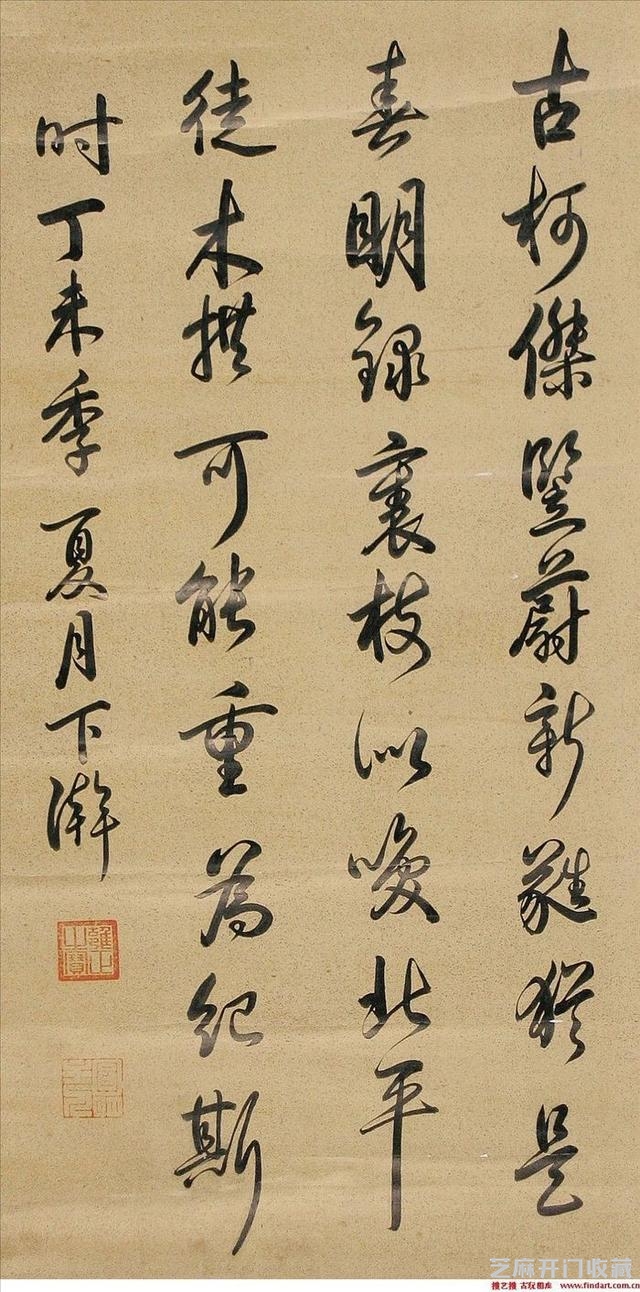 古柯傑竪蔚新蕤猶是
春明錄裏枝似喚北平
徒木撰可能重為紀斯
时丁未季夏月下澣
雍正
之寶
芝麻开门收藏
搜艺搜 古玩相库 www.findart.com.cn